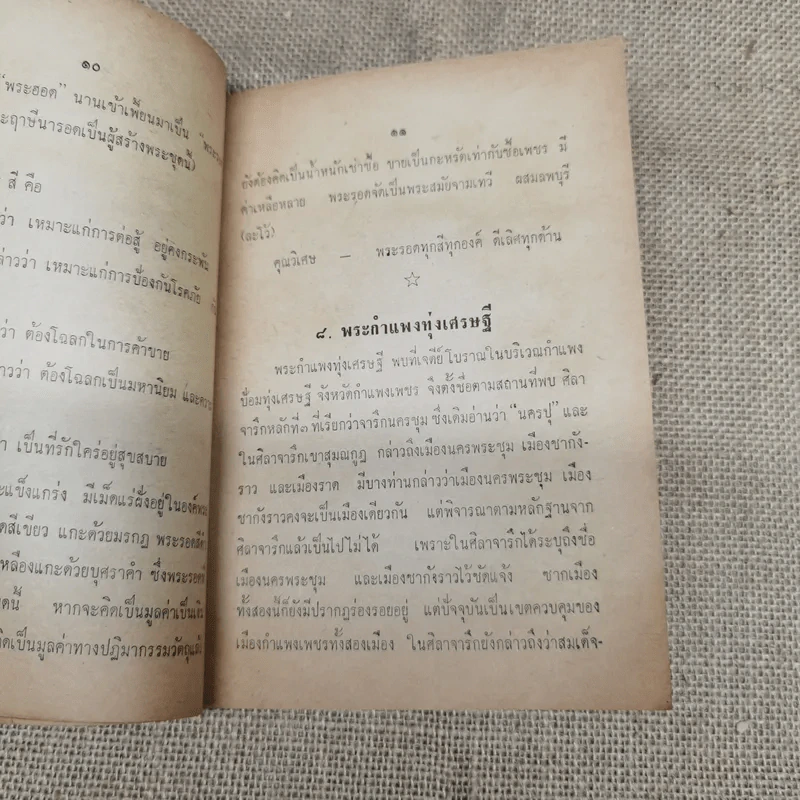 ๑๐
"พระฮอด" นานเข้าเพี้ยนมาเป็น
ฤาษีนารอดเป็นผู้สร้างพระชุดนี้)
สี คือ
ว่า เหมาะแก่การต่อสู้ อยู่คงกระพัน
ล่าวว่า เหมาะแก่การป้องกันโรคภัย
ว่า ต้องโฉลกในการค้าขาย
าวว่า ต้องโฉลกเป็นมหานิยม และความ
า เป็นที่รักใคร่อยู่สุขสบาย
ะแข็งแกร่ง มีเม็ดแร่ฝังอยู่ในองค์พระ
ดสีเขียว แกะด้วยมรกฎ พระรอดสี
เหลืองแกะด้วยบุศราคำ ซึ่งพระรอด
ชุดนี้ หากจะคิดเป็นมูลค่าเป็นเงิน
คิดเป็นมูลค่าทางปฏิมากรรมวัตถุแล้ว
๑๑
ยังต้องคิดเป็นน้ำหนักเช่าซื้อ ขายเป็นกะหรัตเท่ากับซื้อเพชร มี
ค่าเหลือหลาย พระรอดจัดเป็นพระสมัยจามเทวี ผสมลพบุรี
(ละโว้)
คุณวิเศษ — พระรอดทุกสีทุกองค์ ดีเลิศทุกด้าน
☆
๘. พระกำแพงทุ่งเศรษฐี
พระกำแพงทุ่งเศรษฐี พบที่เจดีย์โบราณในบริเวณกำแพง
ป้อมทุ่งเศรษฐี จังหวัดกำแพงเพชร จึงตั้งชื่อตามสถานที่พบ ศิลา
จารึกหลักที่๓ ที่เรียกว่าจารึกนครชุม ซึ่งเดิมอ่านว่า "นครปุ" และ
ในศิลาจารึกเขาสุมณกูฏ กล่าวถึงเมืองนครพระชุม เมืองชากัง-
ราว และเมืองราด มีบางท่านกล่าวว่าเมืองนครพระชุม เมือง
ชากังราวคงจะเป็นเมืองเดียวกัน แต่พิจารณาตามหลักฐานจาก
ศิลาจารึกแล้วเป็นไปไม่ได้ เพราะในศิลาจารึกได้ระบุถึงชื่อ
เมืองนครพระชุม และเมืองชากังราวไว้ชัดแจ้ง ซากเมือง
ทั้งสองนี้ก็ยังมีปรากฏร่องรอยอยู่ แต่ปัจจุบันเป็นเขตควบคุมของ
เมืองกำแพงเพชรทั้งสองเมือง ในศิลาจารึกยังกล่าวถึงว่าสมเด็จ-